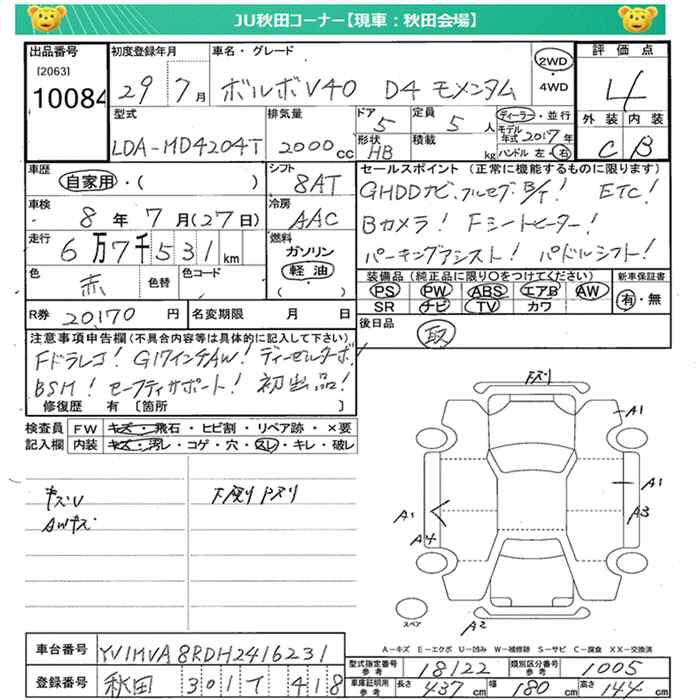 JU秋田コーナー【現車：秋田会場】
出品番号 [2063] 10084
初度登録年月 29 7月
車名・グレード ボルボV40 D4 モメンタム
2WD・4WD
評価点 4
外装 C 内装 B
型式 LDA-MD4204T
排気量 2000cc
ドア 5 形状 HB
定員 5人 積載 kg
ディーラー・並行
モデル年式 2017年
ハンドル 左・右
車歴 自家用・( )
車検 8年7月(27日)
走行 6万7千531km
色 赤 色替 色コード
シフト 8AT
冷房 AAC
燃料 ガソリン 軽油 ( )
セールスポイント (正常に機能するものに限ります)
GHDDナビ、フルセグ、B/T! ETC!
Bカメラ! Fシートヒーター!
パーキングアシスト! パドルシフト!
装備品 (純正品に限り○をつけてください)
PS PW ABS エアB AW
SR ナビ TV カワ
新車保証書 有・無
R券 20170円
名変期限 月 日
後日品 取
注意事項申告欄(不具合内容等は具体的に記入して下さい)
Fドラレコ! G17インチAW! ディーゼルターボ!
BSM! セーフティサポート! 初出品!
修復歴 有 [箇所 ]
検査員記入欄
FW キズ・飛石・ヒビ割・リペア跡・×要
内装 キズ・汚レ・コゲ・穴・スレ・キレ・破レ
キズU
AWキズ
A1
A1
A3
A1
A4
A2
スペア
A－キズ E－エクボ U－凹み W－補修跡 S－サビ C－腐食 XX－交換済
車台番号 YV1MVA8RDH2416231
登録番号 秋田 301 て 418
型式指定番号 参考 18122
類別区分番号 参考 1005
車庫証明用 参考 長さ 437cm 幅 180cm 高さ 144cm